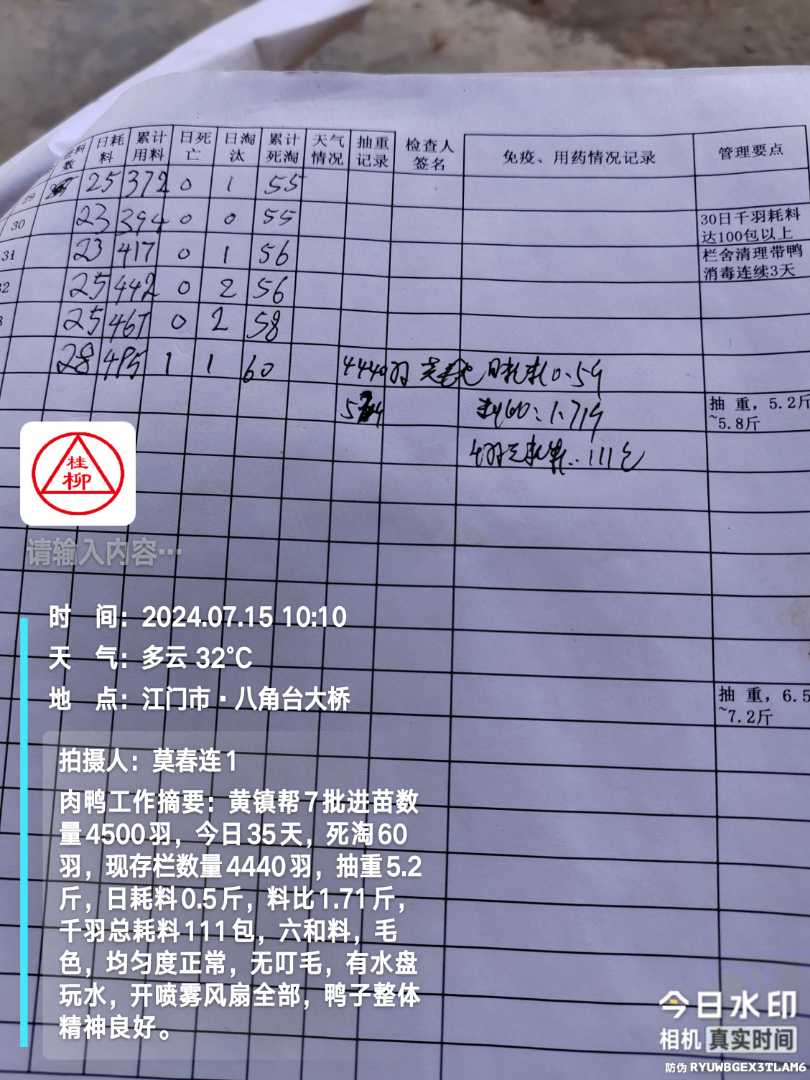 料数 日耗料 累计用料 日死亡 日淘汰 累计死淘 天气情况 抽重记录 检查人签名 免疫、用药情况记录 管理要点
29 25 372 0 1 55
30 23 394 0 0 55 30日千羽耗料达100包以上
31 23 417 0 1 56 栏舍清理带鸭消毒连续3天
32 25 442 0 2 56
25 467 0 2 58
28 495 1 1 60 4440羽 日耗料0.5斤
1.71斤 抽 重，5.2斤~5.8斤
111包
抽 重，6.5~7.2斤
桂
柳
请输入内容…
时 间：2024.07.15 10:10
天 气：多云 32℃
地 点：江门市·八角台大桥
拍摄人：莫春连1
肉鸭工作摘要：黄镇帮7批进苗数
量4500羽，今日35天，死淘60
羽，现存栏数量4440羽，抽重5.2
斤，日耗料0.5斤，料比1.71斤，
千羽总耗料111包，六和料，毛
色，均匀度正常，无叮毛，有水盘
玩水，开喷雾风扇全部，鸭子整体
精神良好。
今日水印
相机 真实时间
防伪 RYUWBGEX3TLAM6